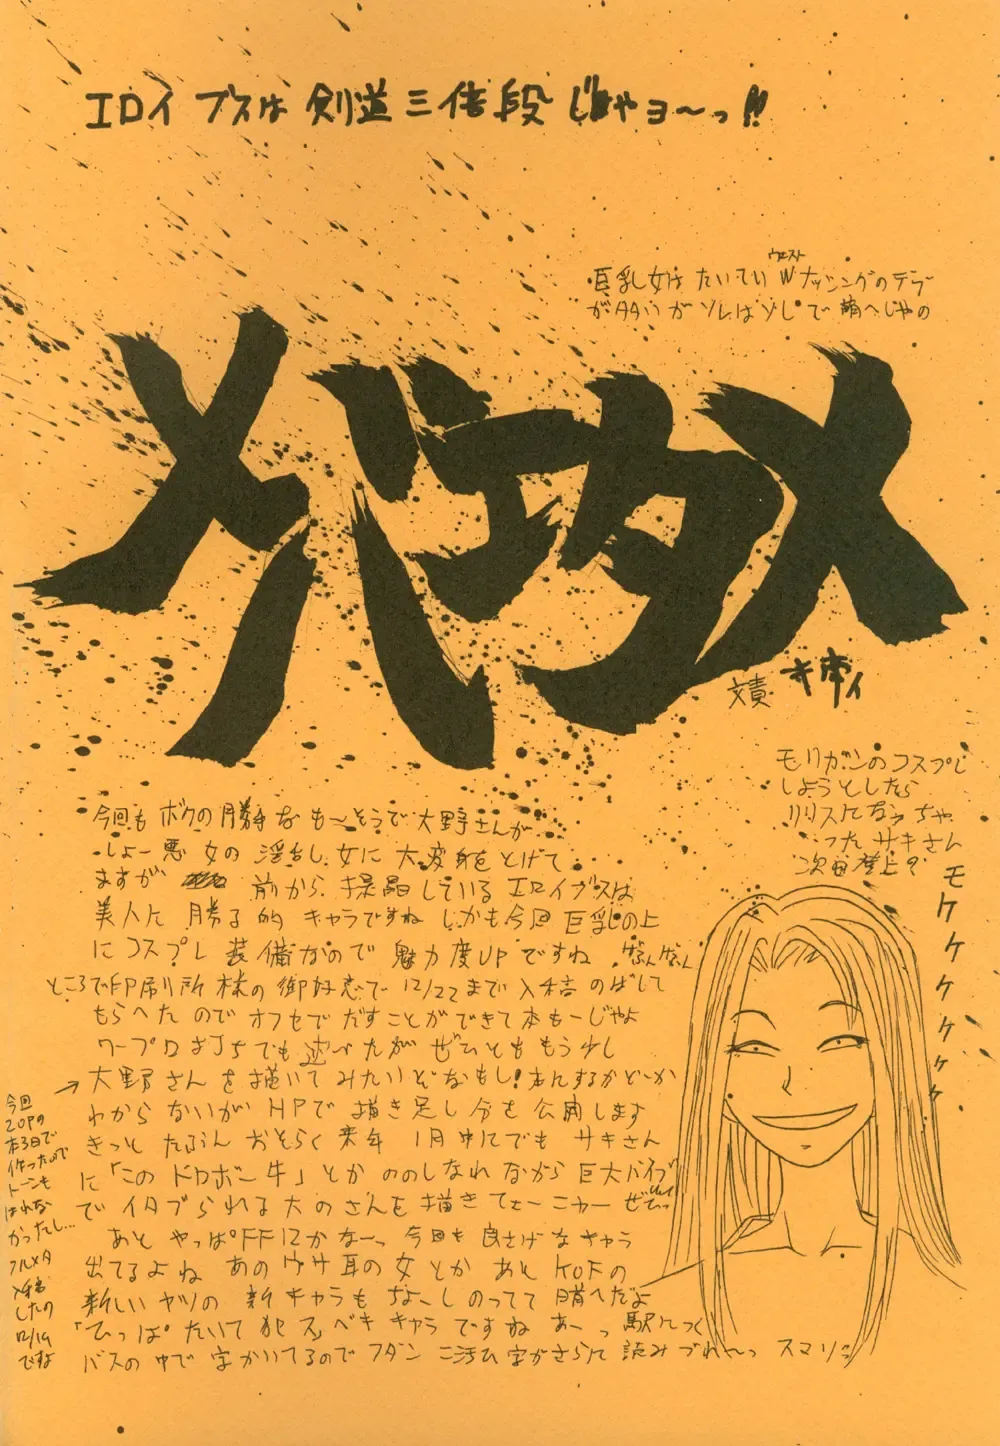 エロイ ブスは 剣道三倍段 じゃヨ〜っ!!
ウエスト
巨乳女は たいてい Wナッシングのデブ
が多いが ソレはソレで 萌へじゃの
メバエタメ
文責
モリガンのコスプレ
しようとしたら
リリスになっちゃ
った サキさん
次回登上?
モケケケケケケ
今回も ボクの勝手な も〜そうで 大野さんが
しょー悪女の 淫乱女に 大変身をとげて
ますが 前から 提晶している エロイブスは
美人に 勝る 的 キャラですね しかも今回 巨乳の上
にコスプレ 装備なので 魅力度UPですね
ところで印刷所様の御好意で 12/22まで入稿 のばして
もらへたので オフセで だすことができて本もーじゃよ
ワープロ打ちでも 述べたが ぜひとも もう少し
大野さん を描いて みたいぞなもし! 本にするかどーか
わからないが HPで 描き足し分を 公開します
きっと たぶん おそらく 来年 1月中にでも サキさん
に「このドロボー牛」とか ののしられながら 巨大バイブ
で イタブられる 大のさんを 描きてぇーにゃー
あと やっぱ FF12かな〜っ 今回も 良さげなキャラ
出てるよね あの ウサ耳の女とか あと KOFの
新しいヤツの 新キャラも ちょーしのってて 萌へだよ
「ひっぱたいて 犯スベキ キャラ ですね あーっ 駅につく
バスの中で 字かいてるので フダン ニ汚ひ字がさらに 読みづれ〜っ スマソっ
今回
20Pの
本3日で
作ったので
トーンも
はれな
かったし…
フルメタ
入稿
したの
12/19
ですよ